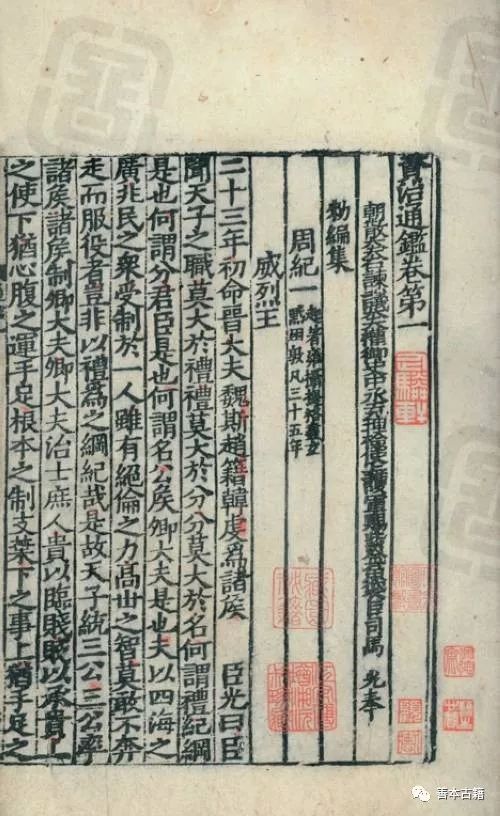 資治通鑑卷第一
朝散大夫右諫議大夫權御史中丞充理檢使上護軍賜紫金魚袋臣司馬 光奉
勑編集
周紀一 起著雍攝提格盡玄
黓困敦凡三十五年
威烈王
二十三年初命晉大夫魏斯趙籍韓虔爲諸侯 臣光曰臣
聞天子之職莫大於禮禮莫大於分分莫大於名何謂禮紀綱
是也何謂分君臣是也何謂名公侯卿大夫是也夫以四海之
廣兆民之衆受制於一人雖有絕倫之力高世之智莫敢不奔
走而服役者豈非以禮爲之綱紀哉是故天子統三公三公率
諸侯諸侯制卿大夫卿大夫治士庶人貴以臨賤賤以承貴上
之使下猶心腹之運手足根本之制支葉下之事上猶手足之
善本古籍